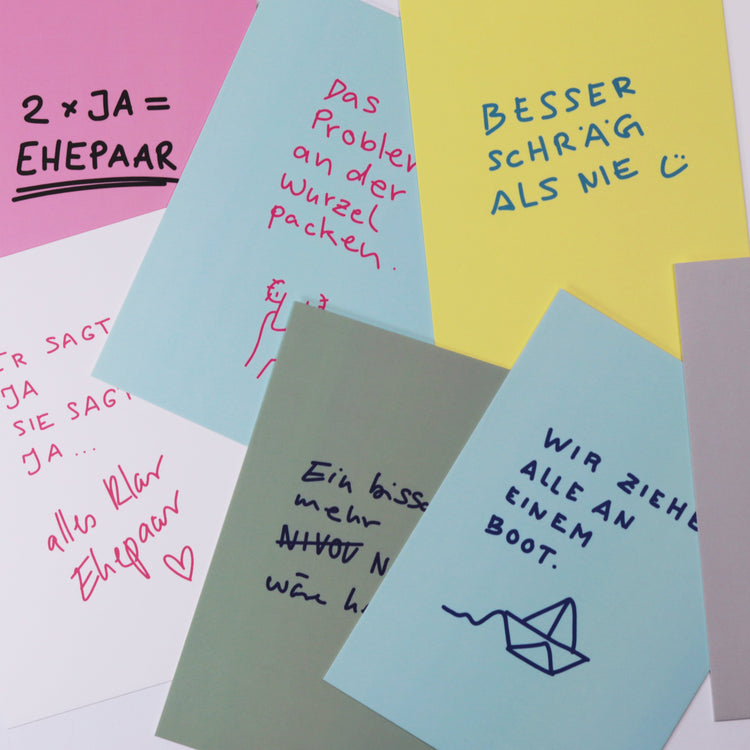 2 × JA =
EHEPAAR
Das
an der
Wurzel
packen.
BESSER
SCHRÄG
ALS NIE
ER SAGT
JA
SIE SAGT
JA ...
alles klar
Ehepaar
Ein
mehr
NIVOU
wäre
WIR
ALLE AN
EINEM
BOOT.